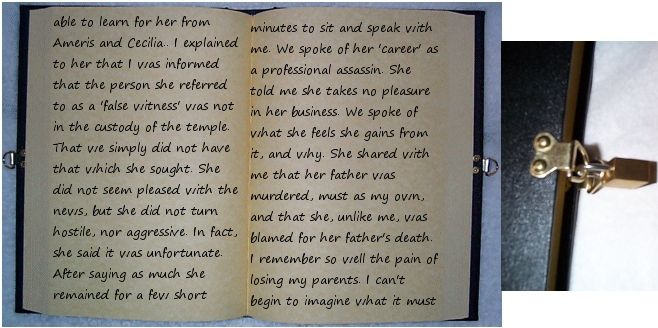 able to learn for her from
Ameris and Cecilia.. I explained
to her that I was informed
that the person she referred
to as a 'false witness' was not
in the custody of the temple.
That we simply did not have
that which she sought. She
did not seem pleased with the
news, but she did not turn
hostile, nor aggressive. In fact,
she said it was unfortunate.
After saying as much she
remained for a few short
minutes to sit and speak with
me. We spoke of her 'career' as
a professional assassin. She
told me she takes no pleasure
in her business. We spoke of
what she feels she gains from
it, and why. She shared with
me that her father was
murdered, must as my own,
and that she, unlike me, was
blamed for her father's death.
I remember so well the pain of
losing my parents. I can't
begin to imagine what it must